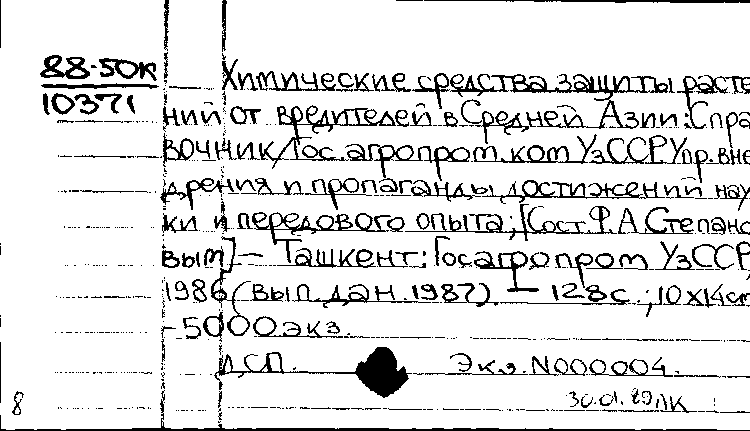 88-50к
10371
Химические средства защиты расте
ний от вредителей в Средней Азии: Спра
вочник/Гос. агропром. ком УзССР, Упр. вне
дрения и пропаганды достижений нау
ки и передового опыта; [Сост. Ф. А Степано
вым] – Ташкент: Госагропром УзССР,
1986 (вып. дан. 1987). – 128 с.; 10х14см
- 5000 экз.
ДСП. Экз. N000004.
8 30.01.89ЛК